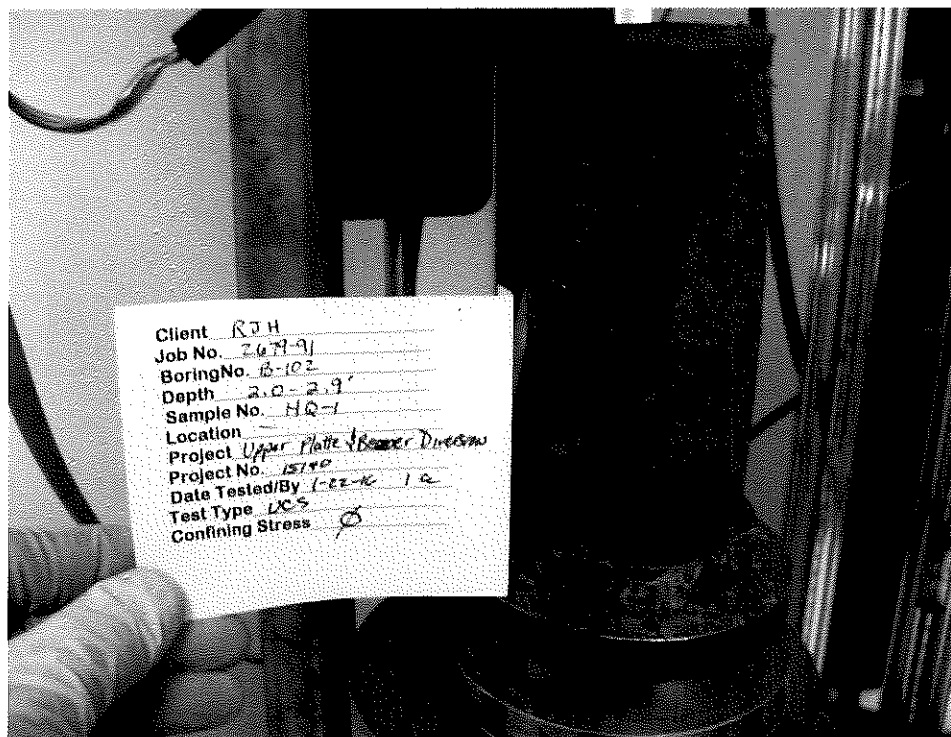 Client RJH
Job No. 2679-91
BoringNo. B-102
Depth 2.0-2.9'
Sample No. HQ-1
Location
Project Upper Platte & Beaver Diversion
Project No. 15140
Date Tested/By 1-22-16
Test Type UCS
Confining Stress Ø